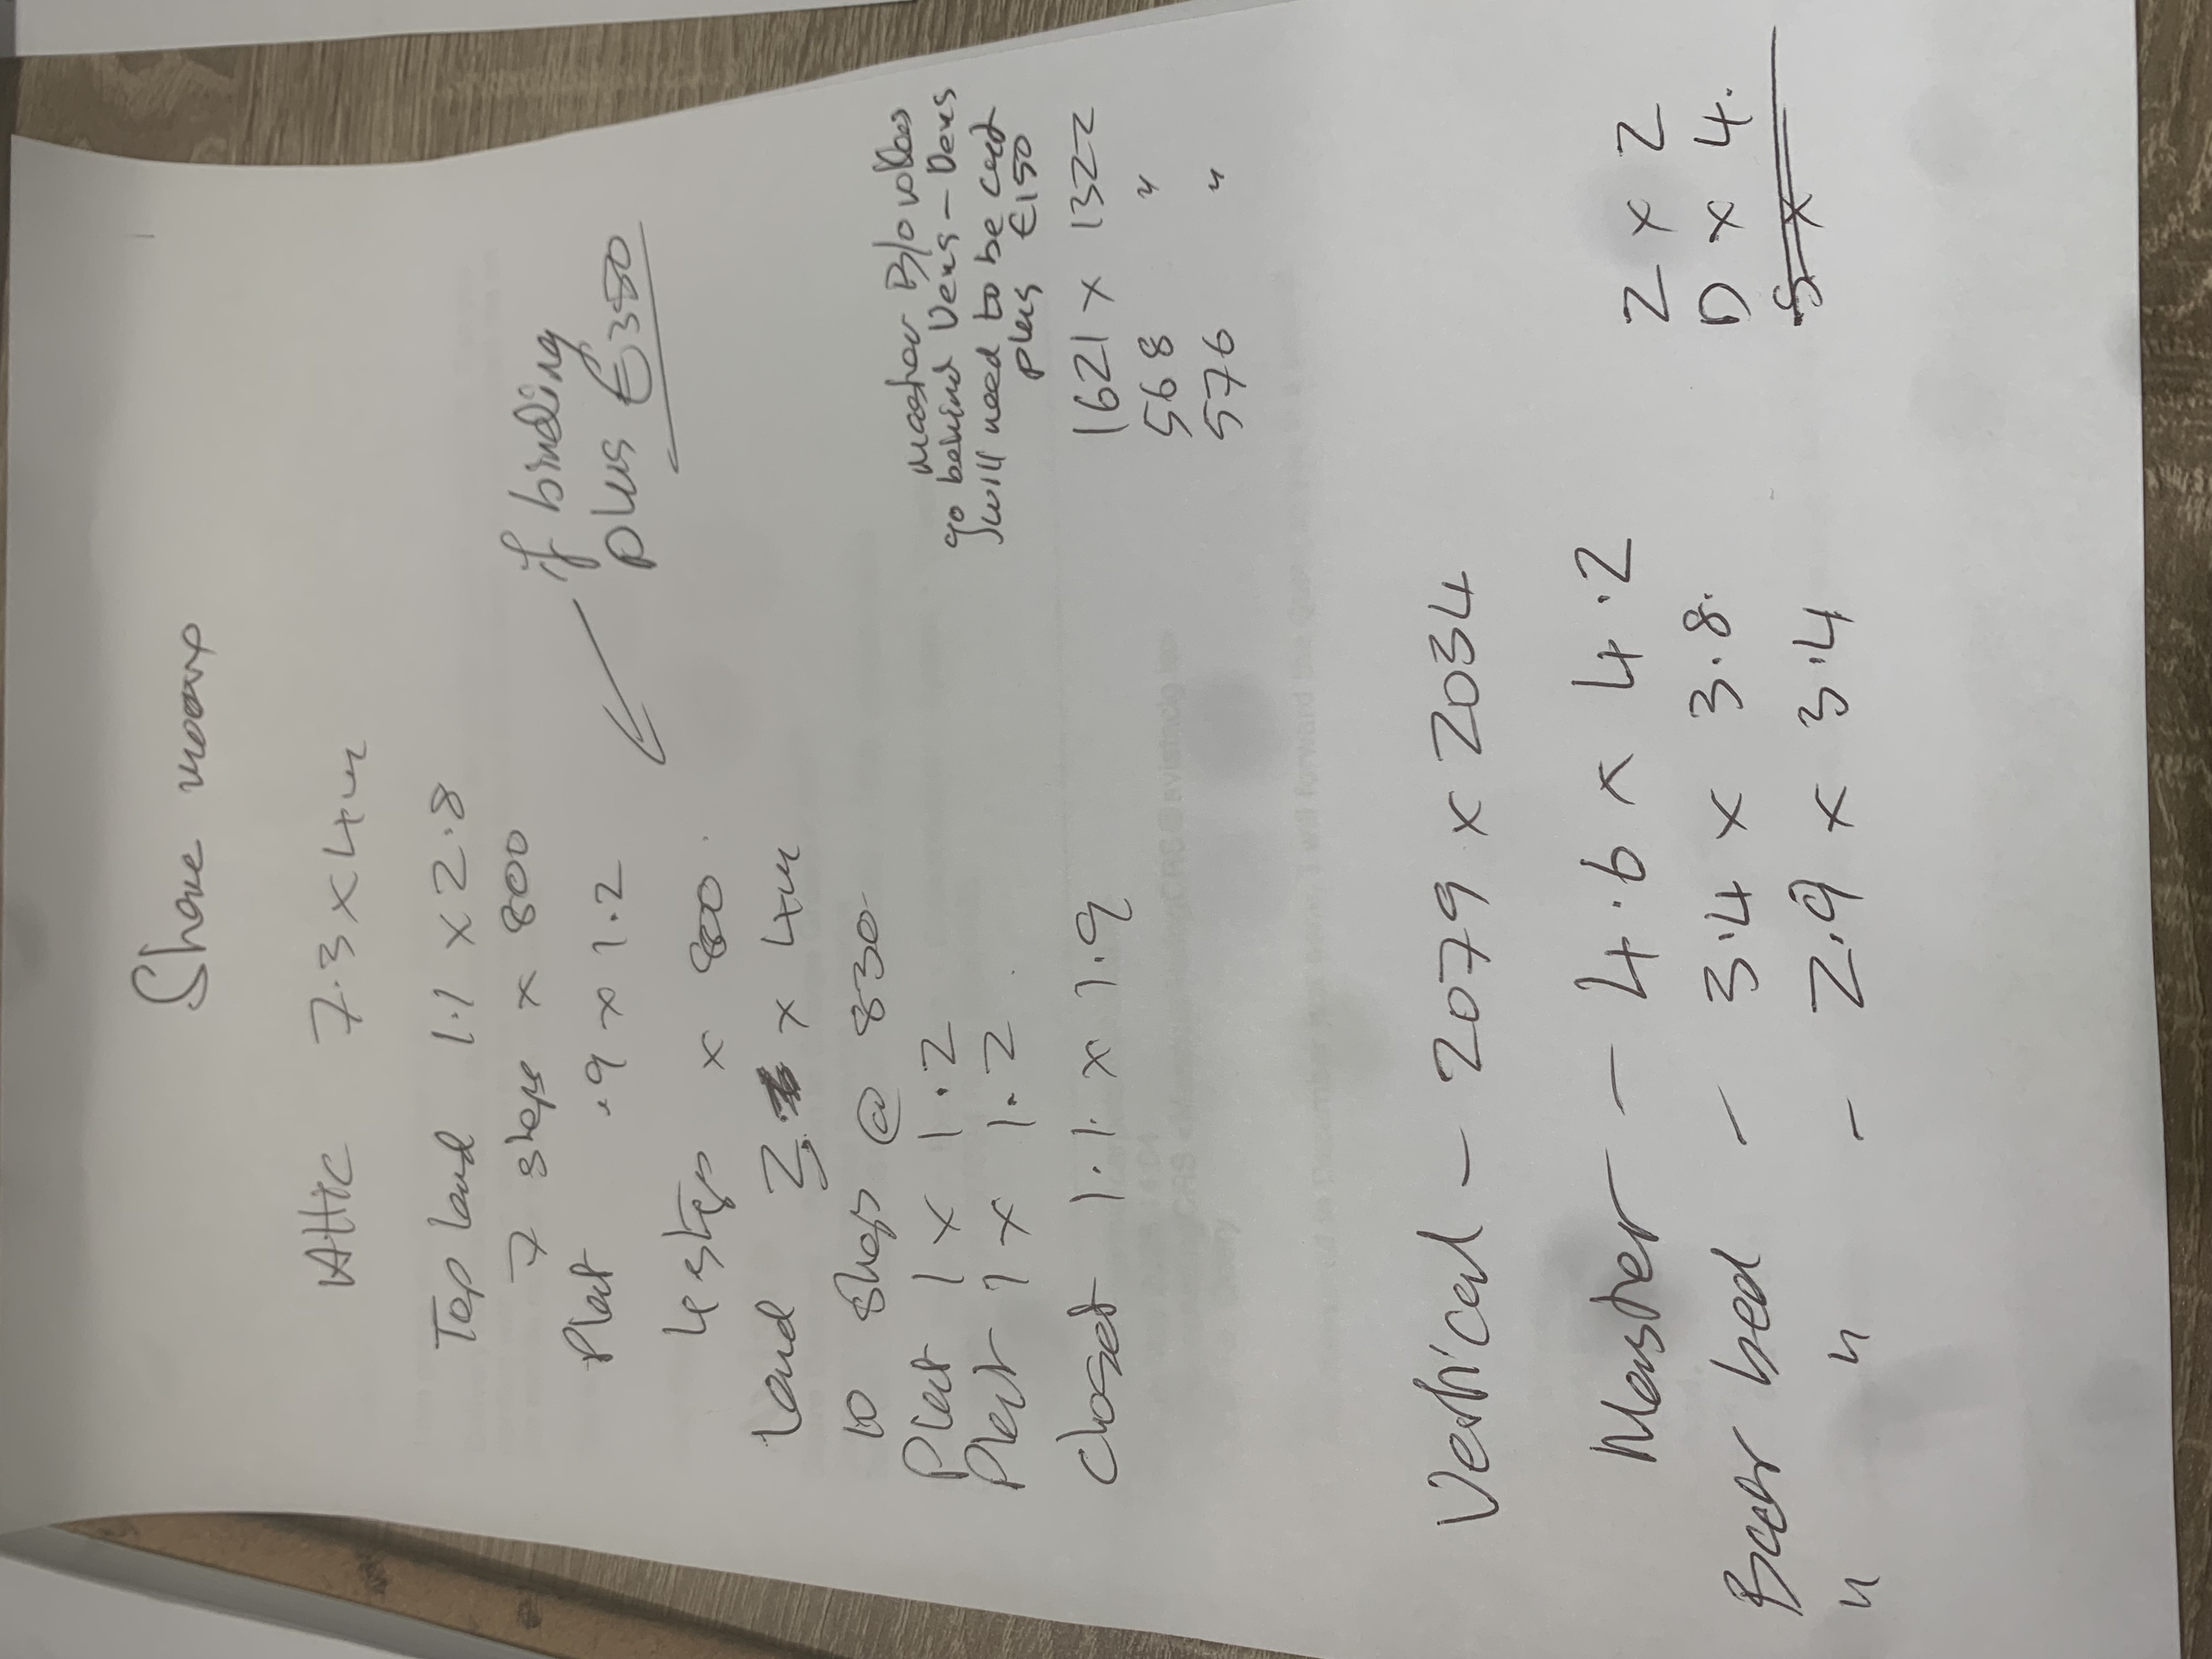 Attic 7.3 x 4m
Top land 1.1 x 2.8
7 steps x 800
if binding
plus €350
Plat .9 x 1.2
4 steps x 800.
Land 2. x 4m
10 steps @ 830
Plat 1 x 1.2
Plat 1 x 1.2.
Closet 1.1 x 1.9
Master B/O
go behind
will need to be cut
plus €150
1621 x 1322
568 "
576 "
Vertical - 2079 x 2034
Master - 4.6 x 4.2
2 x 2
Back bed - 3.4 x 3.8.
D x 4.
" " - 2.9 x 3.4